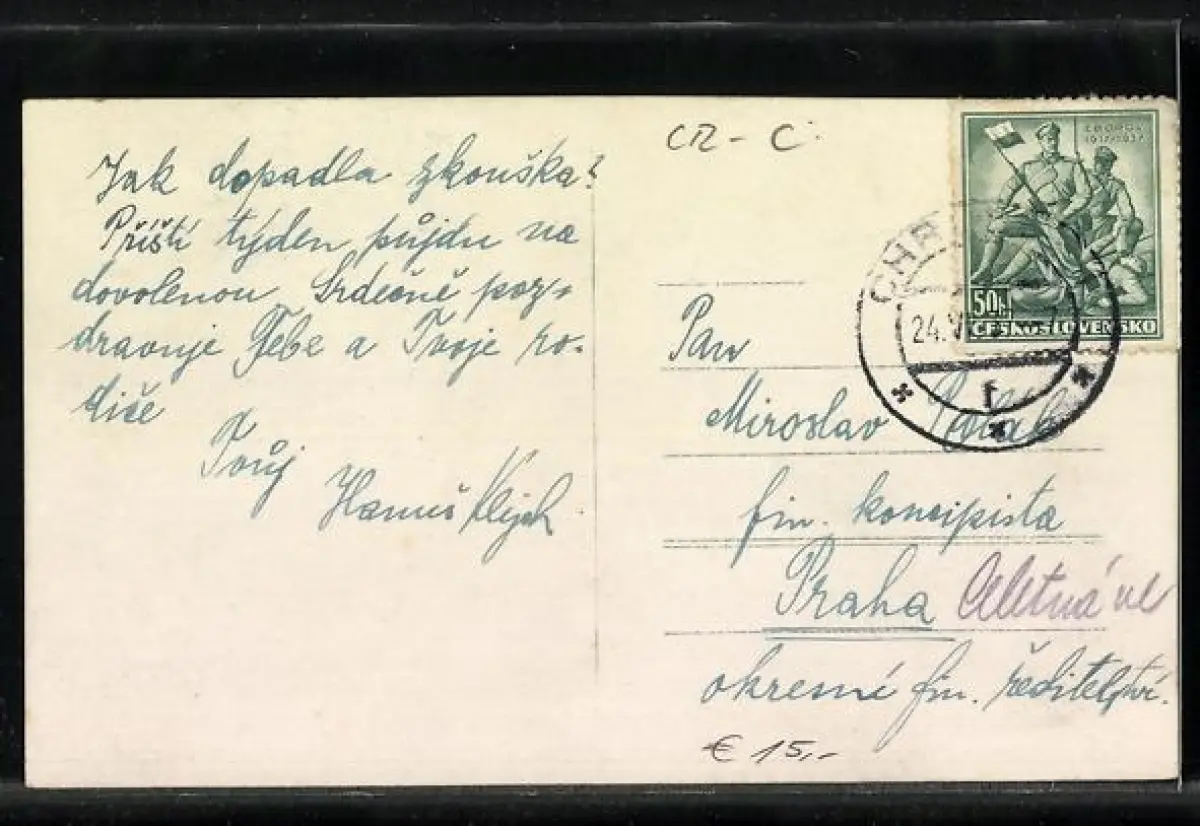 Jak dopadla zkouška?
Příští týden půjdu na
dovolenou. Srdečně poz-
dravuje Tebe a Tvoje ro-
diče
Tvůj
Hanuš
CR - C
ZBOROV
1917/1937
50h
ČESKOSLOVENSKO
24.V
f
Pan
Miroslav
fin. koncipista
Praha Celetná ul
okresní fin. ředitelství.
€ 15,-